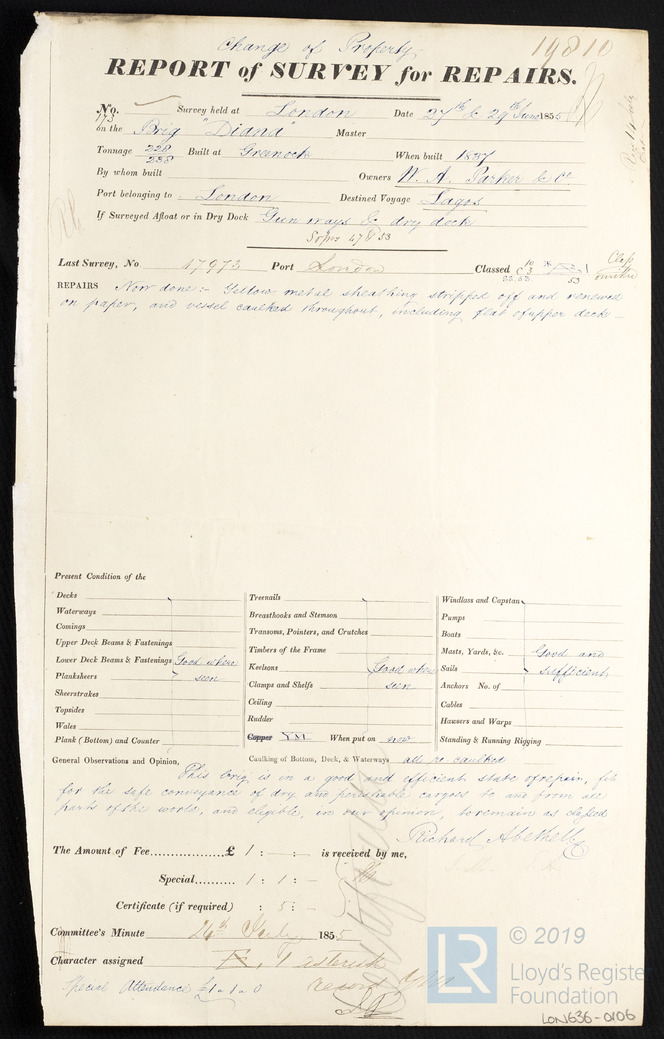 Change of Property
19810
REPORT of SURVEY for REPAIRS.
No. 173 Survey held at London Date 27th & 29th June 1855
on the Brig "Diana" Master
Tonnage 228 238 Built at Greenock When built 1837
By whom built Owners W. A. Parker & Co.
Port belonging to London Destined Voyage Lagos
If Surveyed Afloat or in Dry Dock Gun ways & dry dock
Last Survey, No. 17973 Port London Classed
REPAIRS Now done :- Yellow metal sheathing stripped off and renewed
on paper, and vessel caulked throughout, including flat of upper deck —
Present Condition of the
Decks
Waterways
Comings
Upper Deck Beams & Fastenings
Lower Deck Beams & Fastenings Good where
Planksheers seen
Sheerstrakes
Topsides
Wales
Plank (Bottom) and Counter
Treenails
Breasthooks and Stemson
Transoms, Pointers, and Crutches
Timbers of the Frame
Keelsons Good where
Clamps and Shelfs seen
Ceiling
Rudder
Copper Y.M. When put on now
Windlass and Capstan
Pumps
Boats
Masts, Yards, &c. Good and
Sails sufficient
Anchors No. of
Cables
Hawsers and Warps
Standing & Running Rigging
General Observations and Opinion, Caulking of Bottom, Deck, & Waterways all re caulked
This brig is in a good and efficient state of repair, fit
for the safe conveyance of dry and perishable cargoes to and from all
parts of the world, and eligible, in our opinion, to remain as classed
Richard Abethell
The Amount of Fee £ 1 : — : — is received by me,
Special 1 : 1 : —
Certificate (if required) : 5 : —
Committee's Minute 24th July 1855
Character assigned Æ, 1 asterisk
Special Attendance £1.1.0
© 2019
LR Lloyd's Register
Foundation
LON636-0106